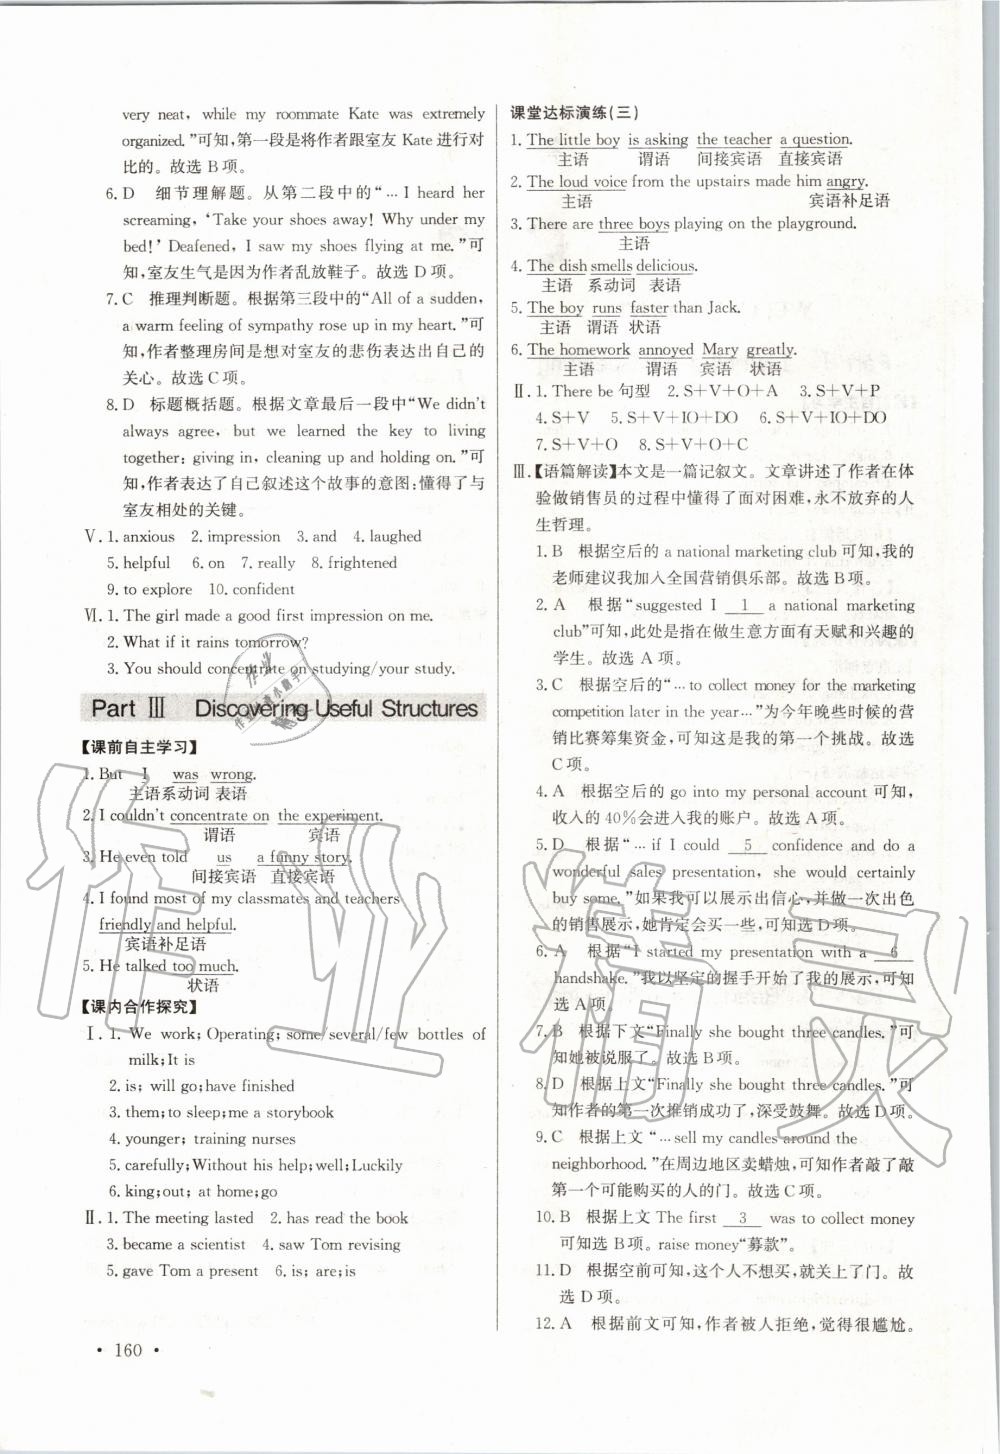 very neat, while my roommate Kate was extremely
organized.”可知，第一段是将作者跟室友 Kate 进行对
比的。故选 B 项。
6. D　细节理解题。从第二段中的“… I heard her
screaming, ‘Take your shoes away! Why under my
bed!’ Deafened, I saw my shoes flying at me.”可
知，室友生气是因为作者乱放鞋子。故选 D 项。
7. C　推理判断题。根据第三段中的“All of a sudden,
a warm feeling of sympathy rose up in my heart.”可
知，作者整理房间是想对室友的悲伤表达出自己的
关心。故选 C 项。
8. D　标题概括题。根据文章最后一段中“We didn’t
always agree, but we learned the key to living
together: giving in, cleaning up and holding on.”可
知，作者表达了自己叙述这个故事的意图：懂得了与
室友相处的关键。
Ⅴ. 1. anxious　2. impression　3. and　4. laughed
5. helpful　6. on　7. really　8. frightened
9. to explore　10. confident
Ⅵ. 1. The girl made a good first impression on me.
2. What if it rains tomorrow?
3. You should concentrate on studying/your study.
Part Ⅲ　Discovering Useful Structures
【课前自主学习】
1. But I was wrong.
主语系动词 表语
2. I couldn’t concentrate on the experiment.
谓语　宾语
3. He even told us a funny story.
间接宾语　直接宾语
4. I found most of my classmates and teachers
friendly and helpful.
宾语补足语
5. He talked too much.
状语
【课内合作探究】
Ⅰ. 1. We work; Operating; some/several/few bottles of
milk; It is
2. is; will go; have finished
3. them; to sleep; me a storybook
4. younger; training nurses
5. carefully; Without his help; well; Luckily
6. king; out; at home; go
Ⅱ. 1. The meeting lasted　2. has read the book
3. became a scientist　4. saw Tom revising
5. gave Tom a present　6. is; are; is
• 160 •
课堂达标演练(三)
1. The little boy is asking the teacher a question.
主语　谓语　间接宾语　直接宾语
2. The loud voice from the upstairs made him angry.
主语　宾语补足语
3. There are three boys playing on the playground.
主语
4. The dish smells delicious.
主语　系动词　表语
5. The boy runs faster than Jack.
主语　谓语　状语
6. The homework annoyed Mary greatly.
主语　谓语　宾语　状语
Ⅱ. 1. There be 句型　2. S+V+O+A　3. S+V+P
4. S+V　5. S+V+IO+DO　6. S+V+IO+DO
7. S+V+O　8. S+V+O+C
Ⅲ.【语篇解读】本文是一篇记叙文。文章讲述了作者在体
验做销售员的过程中懂得了面对困难，永不放弃的人
生哲理。
1. B　根据空后的 a national marketing club 可知，我的
老师建议我加入全国营销俱乐部。故选 B 项。
2. A　根据“suggested I 1 a national marketing
club”可知，此处是指在做生意方面有天赋和兴趣的
学生。故选 A 项。
3. C　根据空后的“… to collect money for the marketing
competition later in the year…”为今年晚些时候的营
销比赛筹集资金，可知这是我的第一个挑战。故选
C 项。
4. A　根据空后的 go into my personal account 可知，
收入的 40％会进入我的账户。故选 A 项。
5. D　根据“… if I could 5 confidence and do a
wonderful sales presentation, she would certainly
buy some.”如果我可以展示出信心，并做一次出色
的销售展示，她肯定会买一些，可知选 D 项。
6. A　根据“I started my presentation with a 6
handshake.”我以坚定的握手开始了我的展示，可知
选 A 项。
7. B　根据下文“Finally she bought three candles.”可
知她被说服了。故选 B 项。
8. D　根据上文“Finally she bought three candles.”可
知作者的第一次推销成功了，深受鼓舞。故选 D 项。
9. C　根据上文“… sell my candles around the
neighborhood.”在周边地区卖蜡烛，可知作者敲了敲
第一个可能购买的人的门。故选 C 项。
10. B　根据上文 The first 3 was to collect money
可知选 B 项。raise money“募款”。
11. D　根据空前可知，这个人不想买，就关上了门。故
选 D 项。
12. A　根据前文可知，作者被人拒绝，觉得很尴尬。
作业精灵